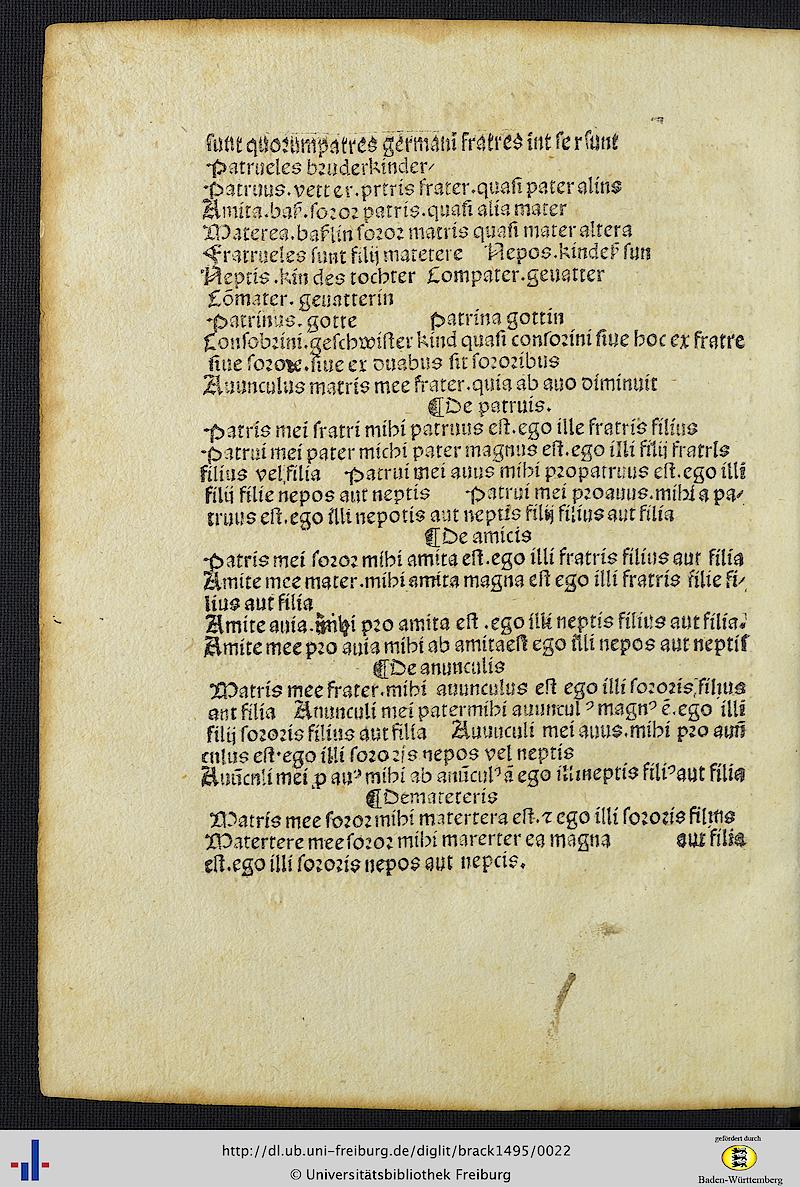 sunt quorumpatres germani fratres int se r sunt
Patrueles bruderkinder/
Patruus.vetter.prtris frater.quasi pater alius
Amita.bas.soror patris.quasi alia mater
Materea.baslin soror matris quasi mater altera
Fratrueles sunt filij matetere Nepos.kindes sun
Neptis.kin des tochter Compater.geuatter
Cõmater.geuatterin
Patrinus.gotte patrina gottin
Consobrini.geschwister kind quasi consorini siue hoc ex fratre
siue sorore.siue ex duabus sit sororibus
Auunculus matris mee frater.quia ab auo diminuit
¶De patruis.
Patris mei fratri mihi patruus est.ego ille fratris filius
Patrui mei pater michi pater magnus est.ego illi filij fratris
filius vel filia Patrui mei auus mihi propatruus est.ego illi
filij filie nepos aut neptis Patrui mei proauus.mihi a pa/
truus est.ego illi nepotis aut neptis filij filius aut filia
¶De amicis
Patris mei soror mihi amita est.ego illi fratris filius aut filia
Amite mee mater.mihi amita magna est ego illi fratris filie fi/
lius aut filia
Amite auia.mihi pro amita est .ego illi neptis filius aut filia.
Amite mee pro auia mihi ab amitaest ego illi nepos aut neptis
¶De anunculis
Matris mee frater.mihi auunculus est ego illi sororis filius
aut filia Anunculi mei patermihi auuncul⁹ magn⁹ ē.ego illi
filij sororis filius aut filia Auunculi mei auus.mihi pro auū
culus est.ego illi sororis nepos vel neptis
Auūculi mei ꝓ au⁹ mihi ab auūcul⁹ ē ego illineptis fili⁹aut filia
¶Demateteris
Matris mee soror mihi matertera est.⁊ ego illi sororis filius
Matertere mee soror mihi marerter ea magna aut filia
est.ego illi sororis nepos aut nepcis.
http://dl.ub.uni-freiburg.de/diglit/brack1495/0022
© Universitätsbibliothek Freiburg
gefördert durch
Baden-Württemberg